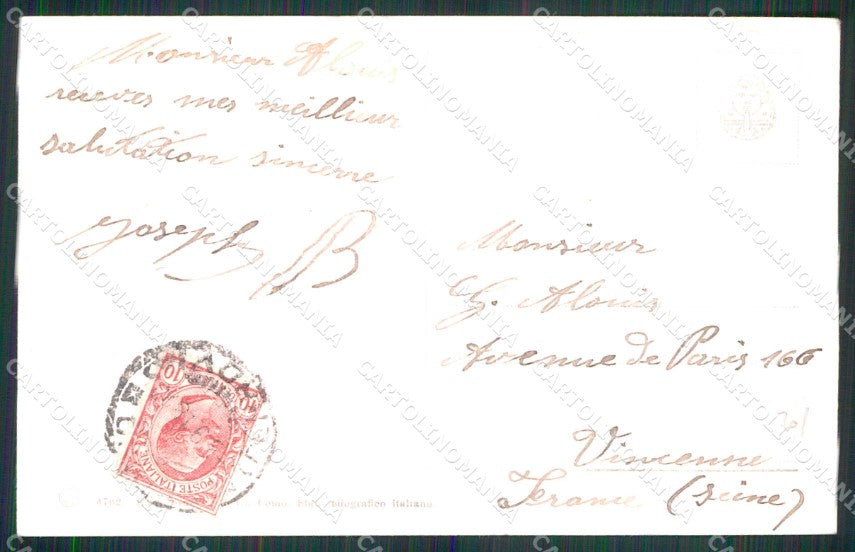 Monsieur Alouis
reeves mes meillieur
salutation sincerre
Joseph B
Monsieur
G. Alouis
Avenue de Paris 166
Vincenne
Frame (Seine)
POSTE ITALIANE
10
4702
Fotografico Italiano
CARTOLINOMANIA